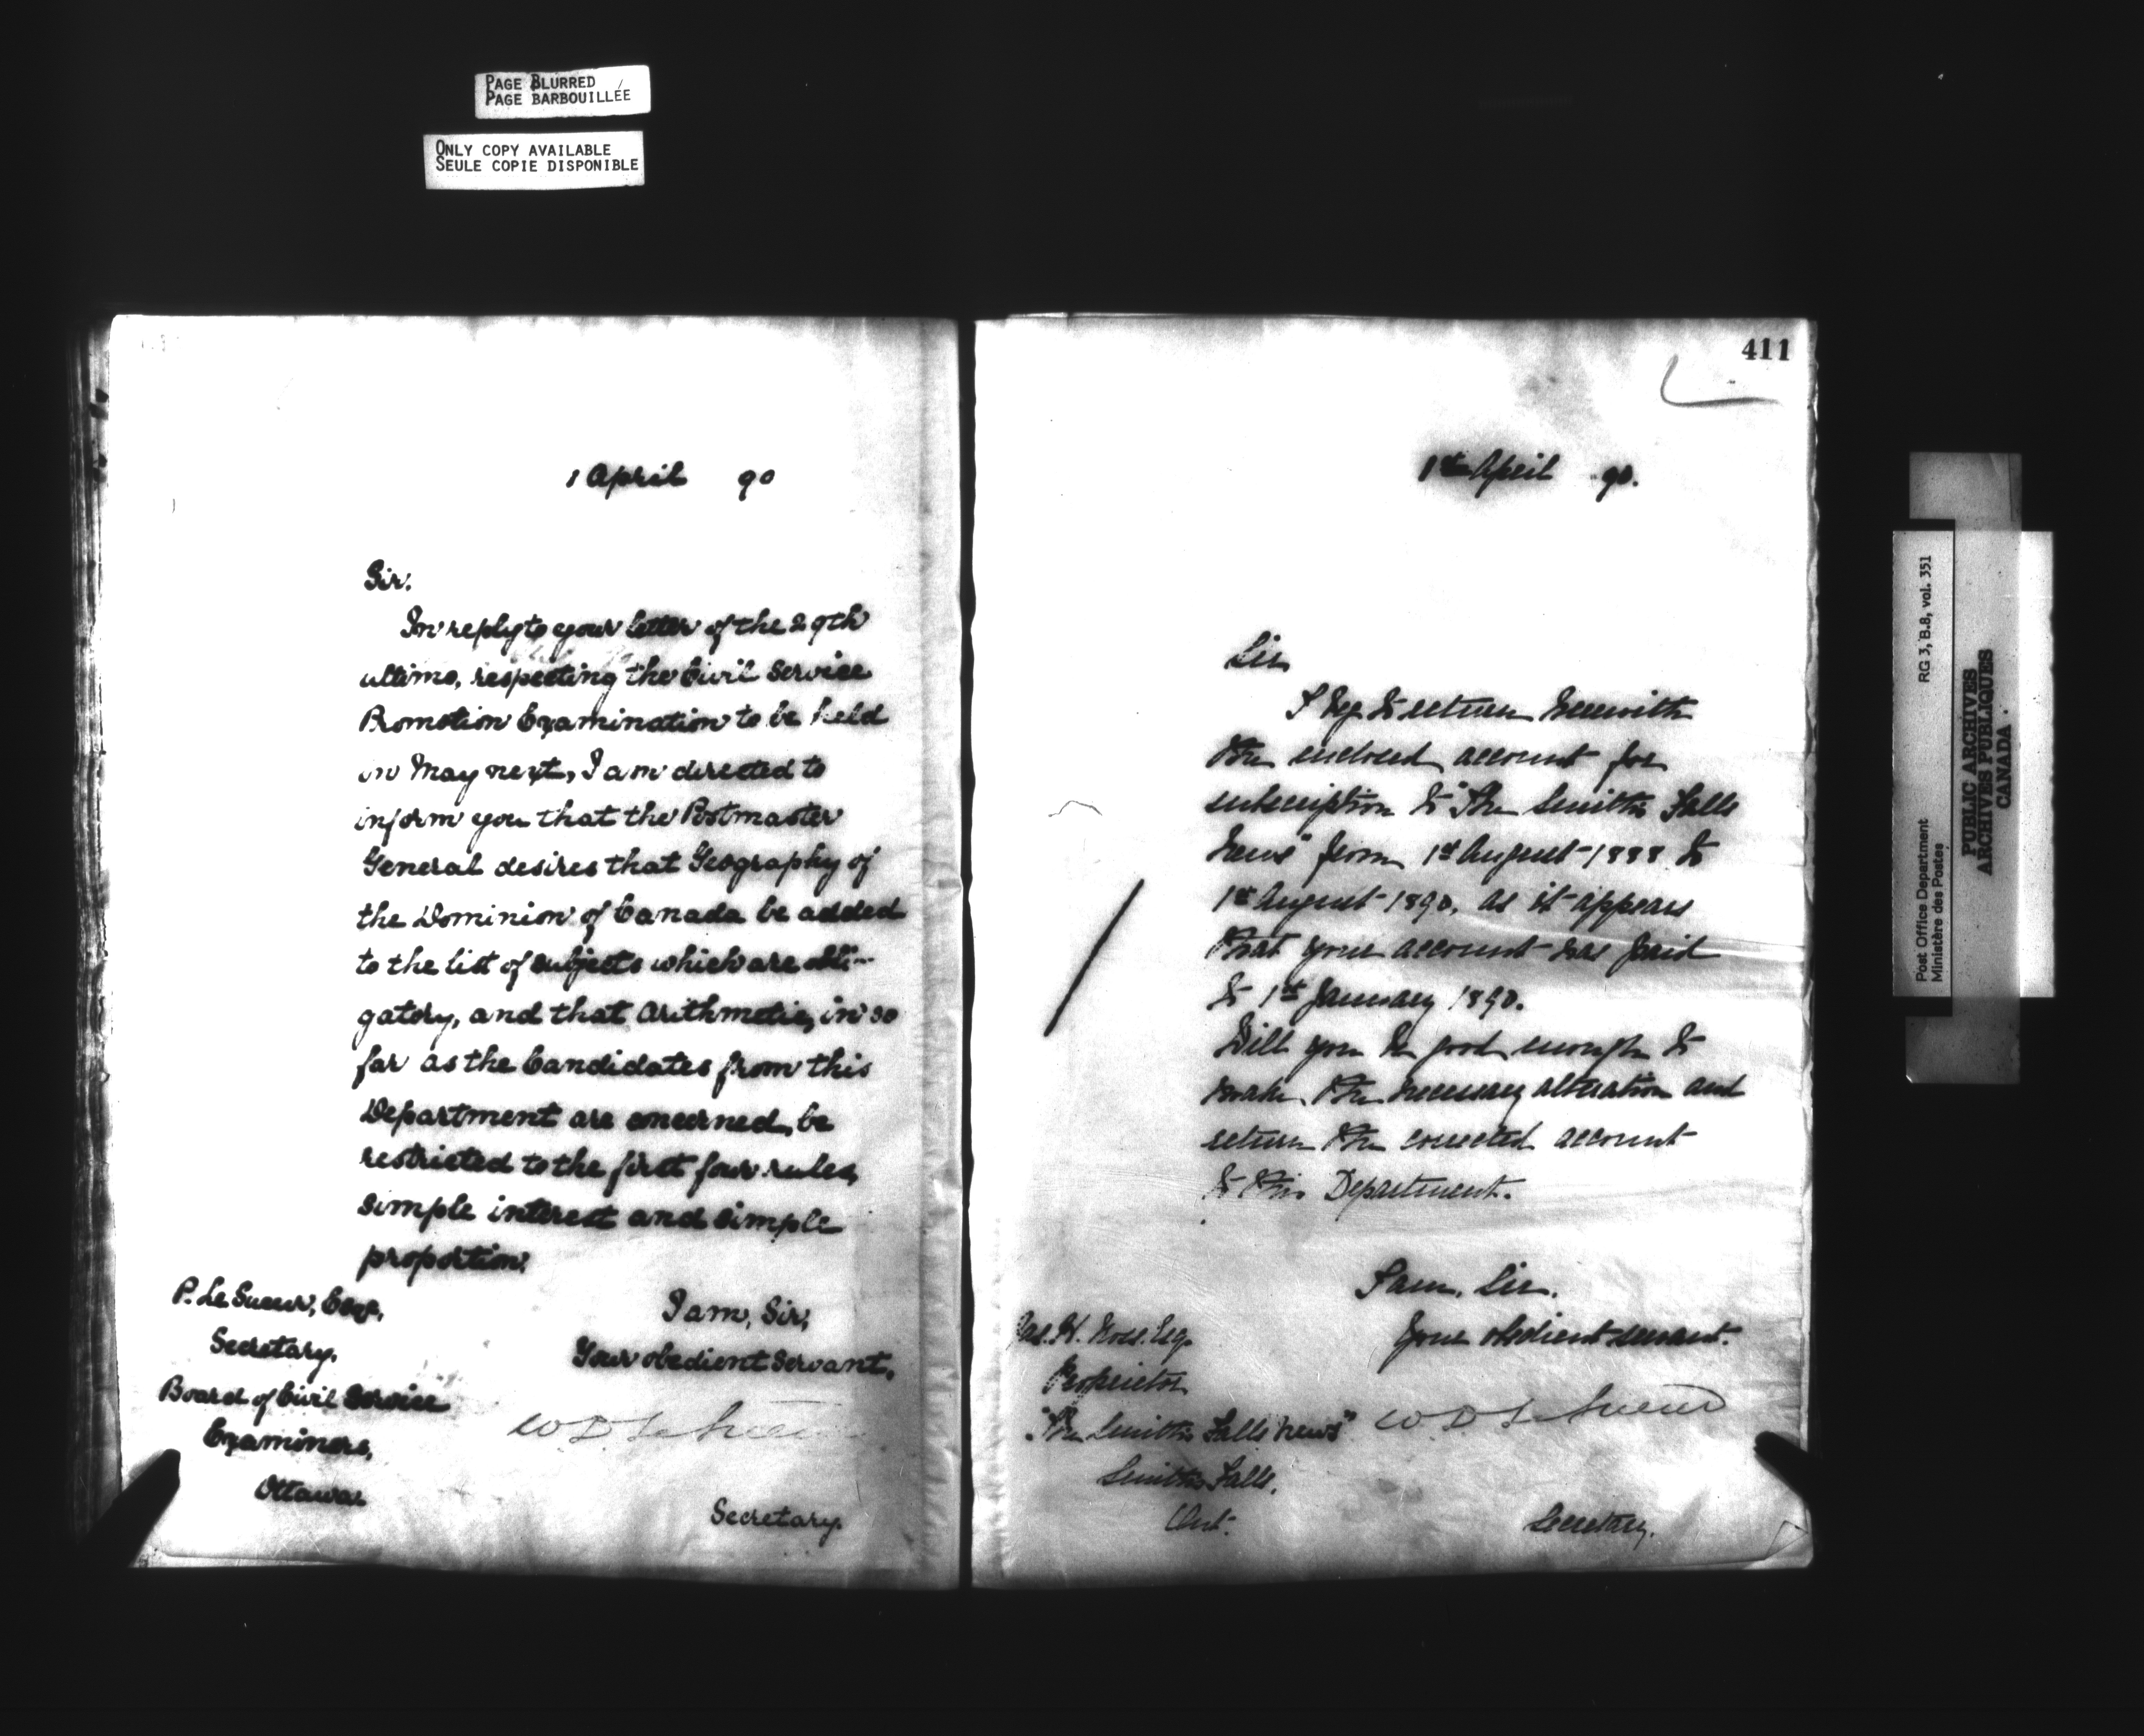 PAGE BLURRED
PAGE BARBOUILLÉE
ONLY COPY AVAILABLE
SEULE COPIE DISPONIBLE
1 April 90
Sir,
In reply to your letter of the 29th
ultimo, respecting the Civil Service
Promotion Examination to be held
in May next, I am directed to
inform you that the Postmaster
General desires that Geography of
the Dominion of Canada be added
to the list of subjects which are obli-
gatory, and that Arithmetic, in so
far as the Candidates from this
Department are concerned, be
restricted to the first four rules,
simple interest and simple
proportion.
I am, Sir,
Your obedient Servant,
W D LeSueur
Secretary.
P. Le Sueur, Esqr.,
Secretary,
Board of Civil Service
Examiners,
Ottawa
411
1st April 90.
Sir
I beg to return herewith
the enclosed account for
subscription to "The Smiths Falls
News" from 1st August 1888 to
1st August 1890, as it appears
that your account was paid
to 1st January 1890.
Will you be good enough to
make the necessary alteration and
return the corrected account
to this Department.
I am, Sir.
Your obedient servant.
W D LeSueur
Secretary.
H. Ross. Esq.
Proprietor
"The Smiths Falls News"
Smiths Falls.
Ont.
Post Office Department
Ministère des Postes
RG 3, B.8, vol. 351
PUBLIC ARCHIVES
ARCHIVES PUBLIQUES
CANADA